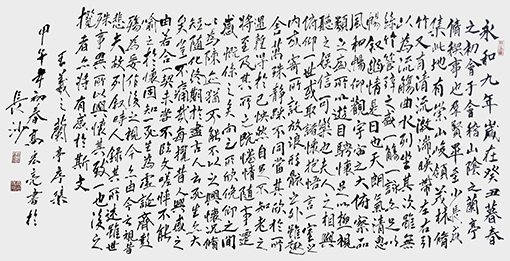 永和九年歲在癸丑暮春
之初會于會稽山陰之蘭亭
脩禊事也群賢畢至少長咸
集此地有崇山峻領茂林脩
竹又有清流激湍映帶左右引
以為流觴曲水列坐其次雖無
絲竹管弦之盛一觴一詠亦足以
暢敘幽情是日也天朗氣清惠
風和暢仰觀宇宙之大俯察品
類之盛所以遊目騁懷足以極視
聽之娛信可樂也夫人之相與
俯仰一世或取諸懷抱悟言一室之
內或寄所託放浪形骸之外雖趣
舍萬殊靜躁不同當其欣於所
遇暫得於己快然自足不知老之
將至及其所之既倦情隨事遷
感慨係之矣向之所欣俛仰之間
以為陳迹猶不能不以之興懷況脩
短隨化終期於盡古人云死生亦大
矣豈不痛哉每攬昔人興感之
由若合一契未嘗不臨文嗟悼不能
喻之於懷固知一死生為虛誕齊彭
殤為妄作後之視今亦由今之視昔
悲夫故列敘時人錄其所述雖世
殊事異所以興懷其致一也後之
攬者亦將有感於斯文
王羲之蘭亭序集
甲午年初春高宏亮書於
長沙